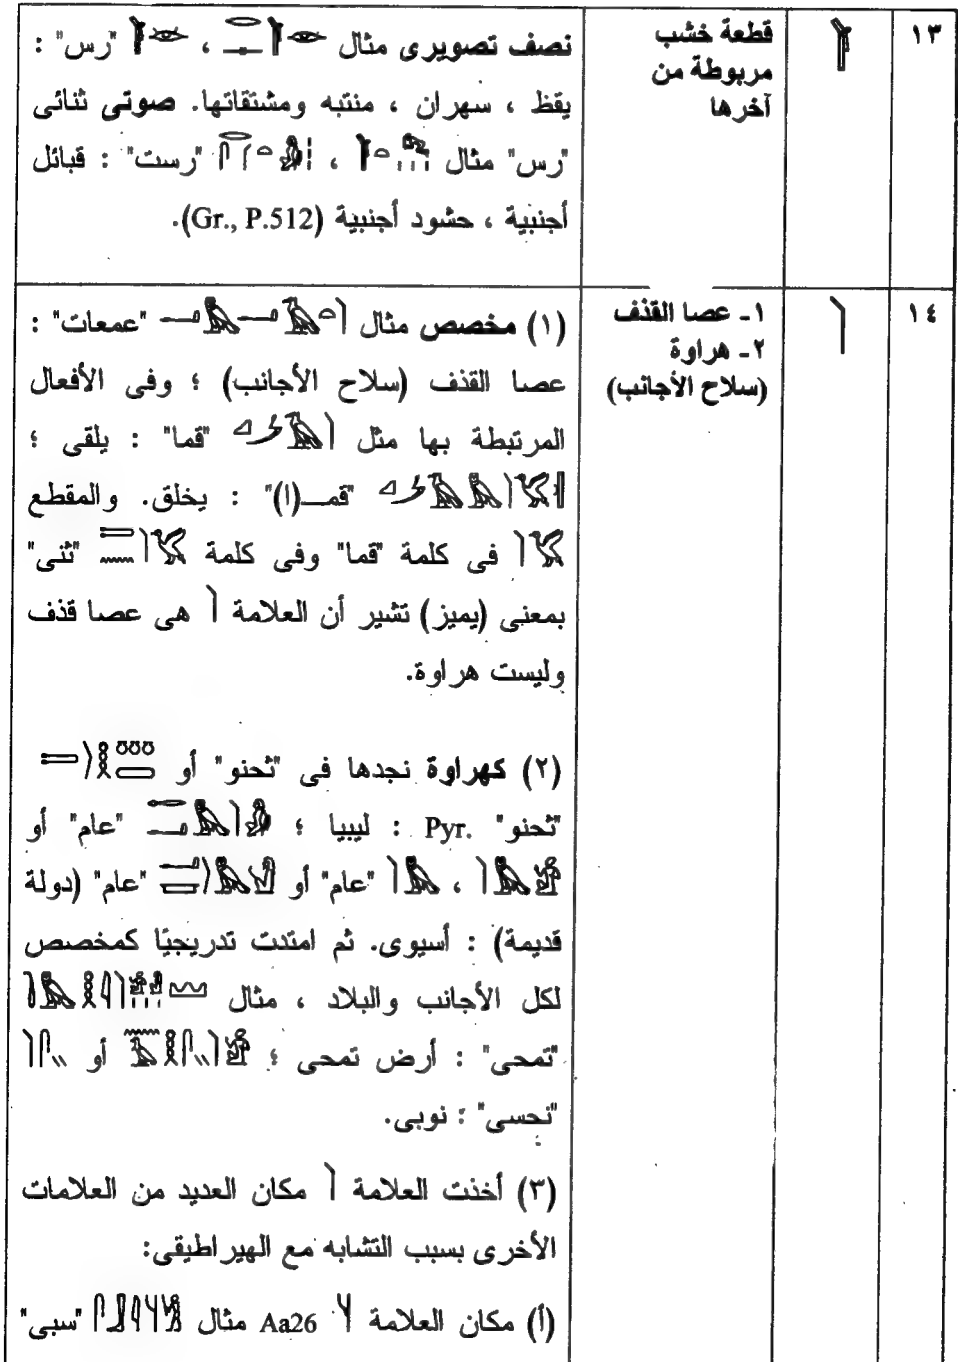 ١٣
قطعة خشب
مربوطة من
آخرها
نصف تصويرى مثال ، "رس" :
يقظ ، سهران ، منتبه ومشتقاتها. صوتى ثنائى
"رس" مثال ، "رست" : قبائل
أجنبية ، حشود أجنبية (Gr., P.512).
١٤
١- عصا القذف
٢- هراوة
(سلاح الأجانب)
(١) مخصص مثال "عمعات" :
عصا القذف (سلاح الأجانب) ؛ وفى الأفعال
المرتبطة بها مثل "قما" : يلقى ؛
"قمـــ(ا)" : يخلق. والمقطع
فى كلمة "قما" وفى كلمة "ثنى"
بمعنى (يميز) تشير أن العلامة هى عصا قذف
وليست هراوة.
(٢) كهراوة نجدها فى "ثحنو" أو
"ثحنو" Pyr. : ليبيا ؛ "عام" أو
، "عام" أو "عام" (دولة
قديمة) : أسيوى. ثم امتدت تدريجيًا كمخصص
لكل الأجانب والبلاد ، مثال
"تمحى" : أرض تمحى ؛ أو
"نحسى" : نوبى.
(٣) أخذت العلامة مكان العديد من العلامات
الأخرى بسبب التشابه مع الهيراطيقى:
(أ) مكان العلامة Aa26 مثال "سبى"